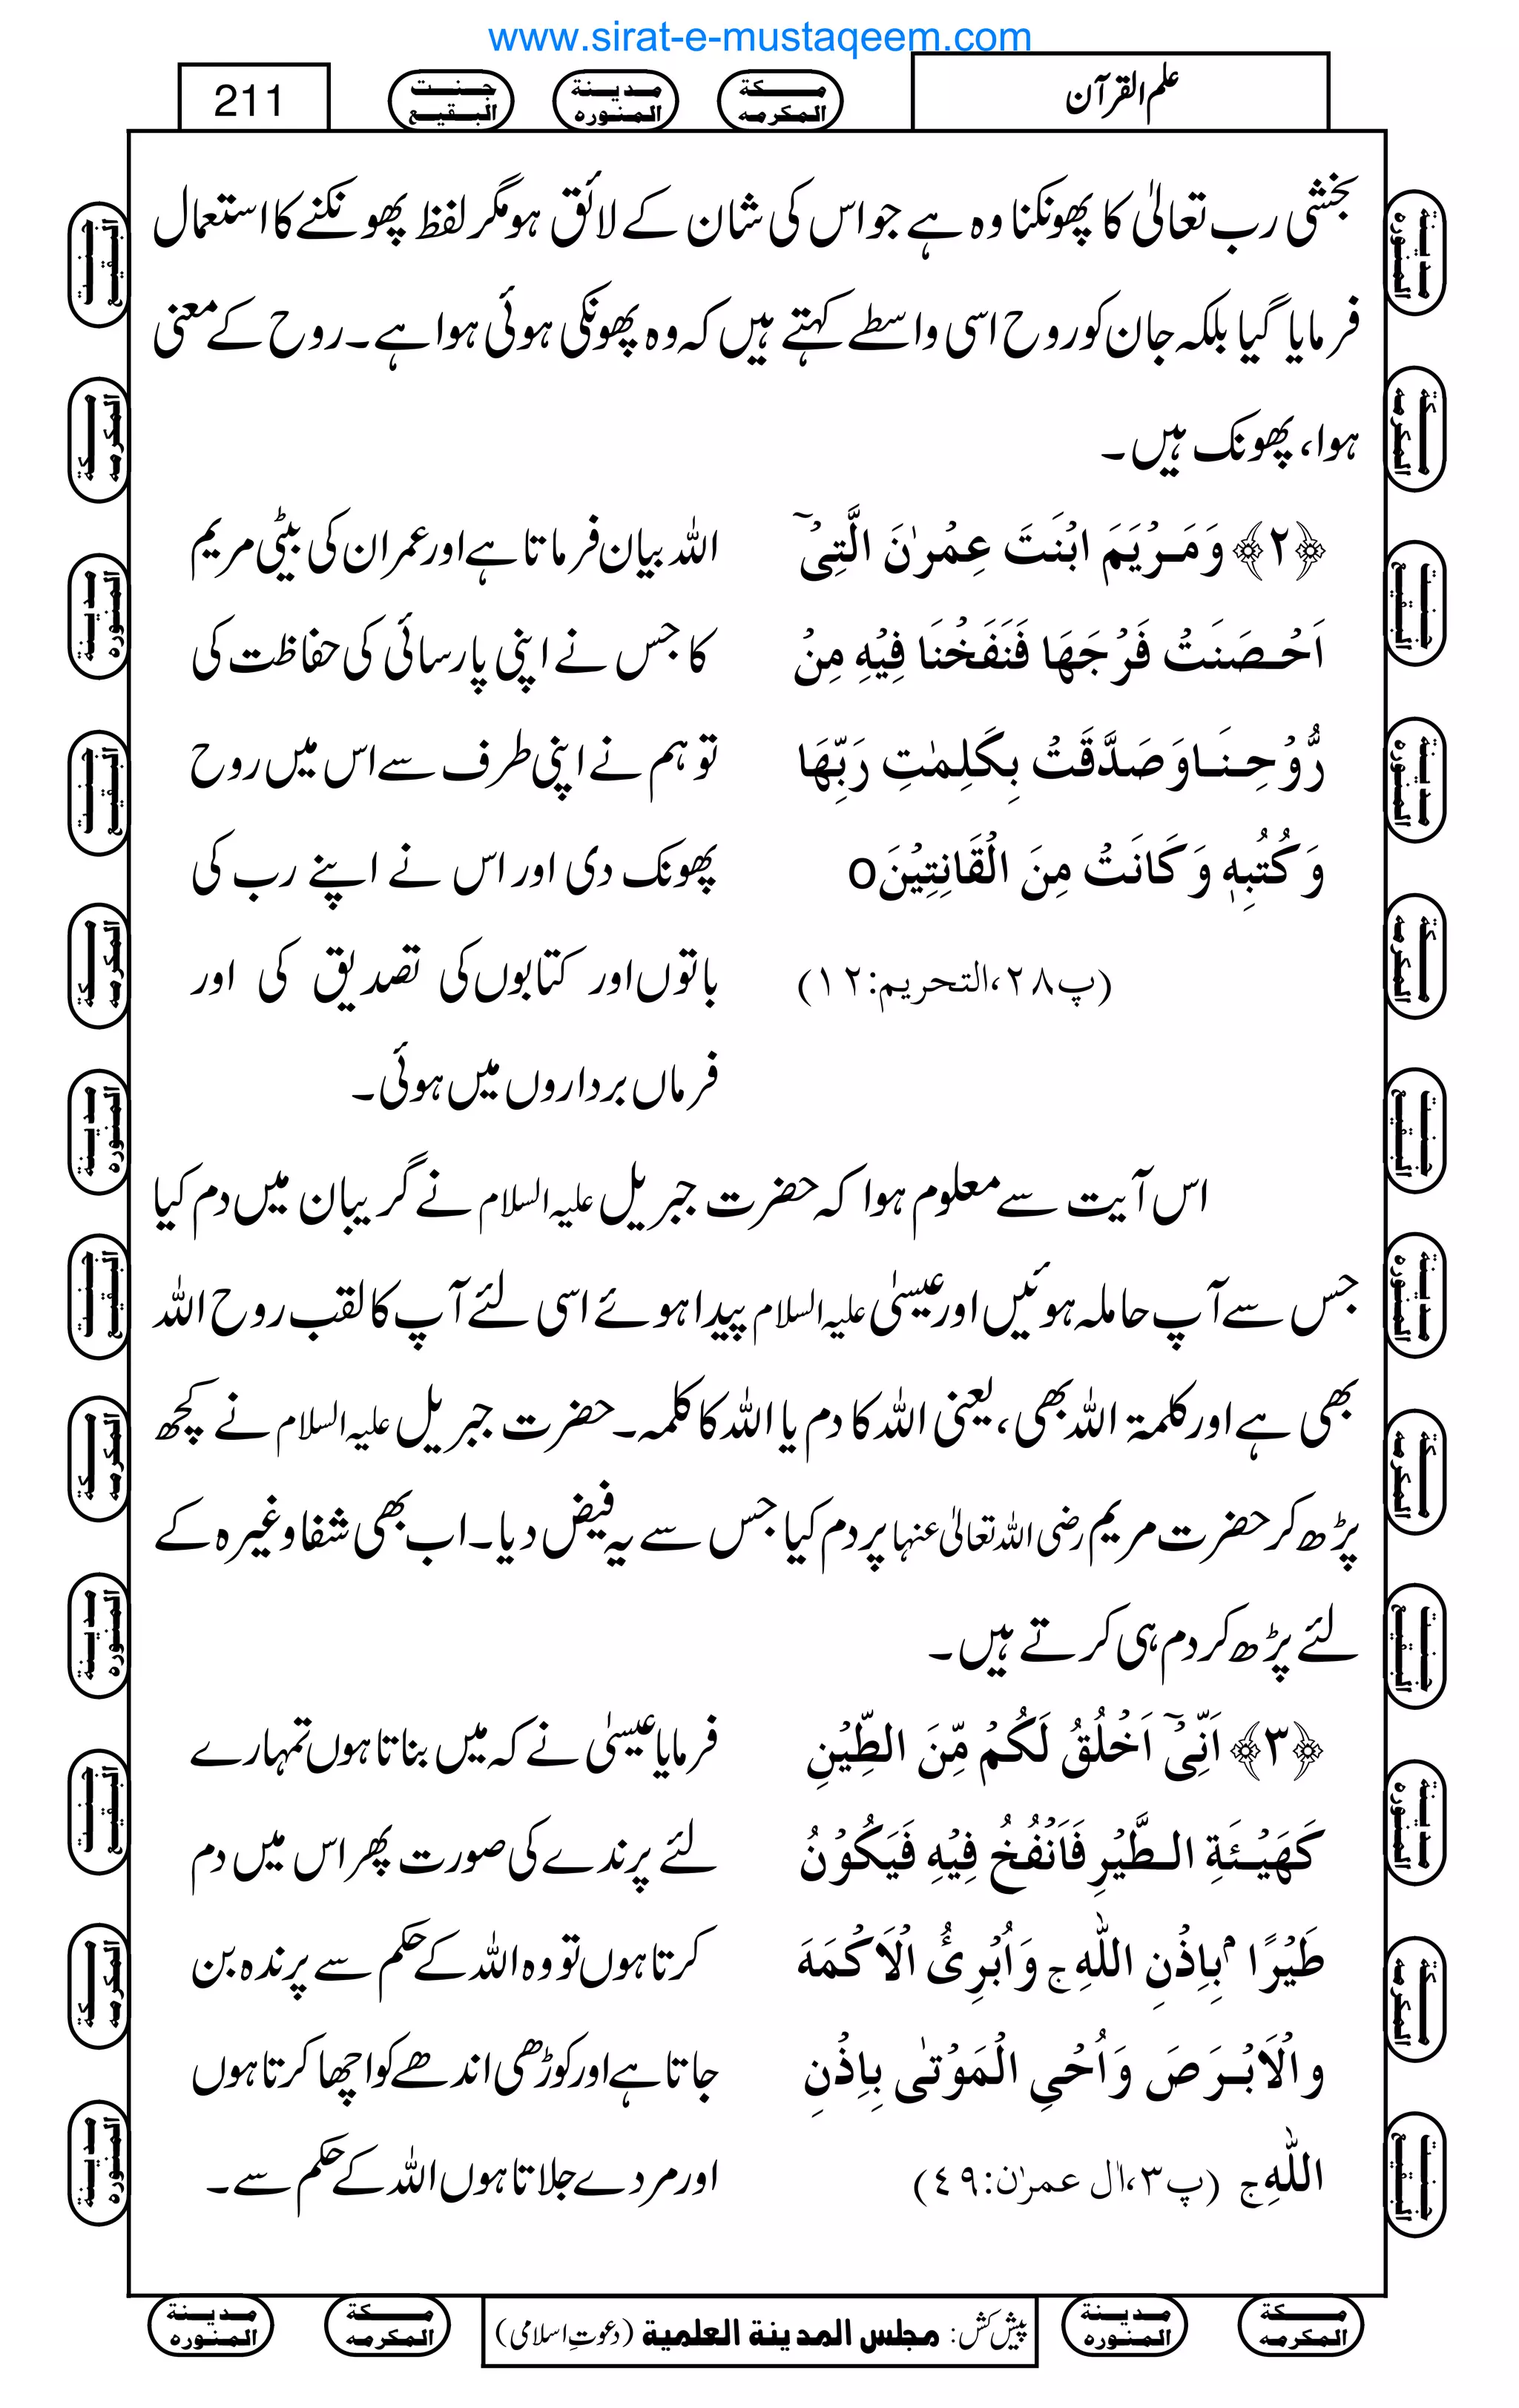 www.sirat-e-mustaqeem.com
علم القرآن
مكة المكرمه
مدينة المنوره
جنت البقيع
211
بخشی رب تعالیٰ کا پھونکنا وہ ہے جو اس کی شان کے لائق ہو مگر لفظ پھونکنے کا استعمال
فرمایا گیا بلکہ جان کو روح اسی واسطے کہتے ہیں کہ وہ پھونکی ہوئی ہوا ہے۔ روح کے معنی
ہوا، پھونک ہیں۔
﴿۲﴾ وَ مَرْيَمَ ابْنَتَ عِمْرٰنَ الَّتِیْۤ
اَحْصَنَتْ فَرْجَهَا فَنَفَخْنَا فِیْهِ مِنْ
رُّوْحِنَا وَصَدَّقَتْ بِكَلِمٰتِ رَبِّهَا
وَ كُتُبِهٖ وَ كَانَتْ مِنَ الْقَانِتِیْنَ o
(پ۲۸،التحریم:۱۲)
اللہ بیان فرماتا ہے اور عمران کی بیٹی مریم
کا جس نے اپنی پارسائی کی حفاظت کی
تو ہم نے اپنی طرف سے اس میں روح
پھونک دی اور اس نے اپنے رب کی
باتوں اور کتابوں کی تصدیق کی اور
فرماں برداروں میں ہوئی۔
اس آیت سے معلوم ہوا کہ حضرت جبریل علیہ السلام نے گریبان میں دم کیا
جس سے آپ حاملہ ہوئیں اور عیسیٰ علیہ السلام پیدا ہوئے اسی لئے آپ کا لقب روح اللہ
بھی ہے اور کلمۃ اللہ بھی، یعنی اللہ کا دم یا اللہ کا کلمہ۔ حضرت جبریل علیہ السلام نے کچھ
پڑھ کر حضرت مریم رضی اللہ تعالیٰ عنہا پر دم کیا جس سے یہ فیض دیا۔ اب بھی شفا وغیرہ کے
لئے پڑھ کر دم ہی کرتے ہیں۔
﴿۳﴾ اَنِّیْۤ اَخْلُقُ لَكُمْ مِّنَ الطِّیْنِ
كَهَیْــَٔةِ الطَّیْرِ فَاَنْفُخُ فِیْهِ فَیَكُوْنُ
طَیْرًا ۢ بِاِذْنِ اللّٰهِ ج وَ اُبْرِئُ الْاَكْمَهَ
والْاَبْرَصَ وَ اُحْیِ الْمَوْتٰی بِاِذْنِ
اللّٰهِ ج (پ۳،اٰل عمرٰن:٤٩)
فرمایا عیسیٰ نے کہ میں بناتا ہوں تمہارے
لئے پرندے کی صورت پھر اس میں دم
کرتا ہوں تو وہ اللہ کے حکم سے پرندہ بن
جاتا ہے اور کوڑھی اندھے کو اچھا کرتا ہوں
اور مردے جلاتا ہوں اللہ کے حکم سے۔
مكة المكرمه
مدينة المنوره
پیش کش: مجلس المدينة العلمية (دعوتِ اسلامی)
مكة المكرمه
مدينة المنوره